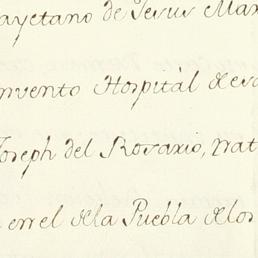 ayetano de Jesus Mar
nvento Hospital de
Joseph del Rosario, Nat
en el de la Puebla de los